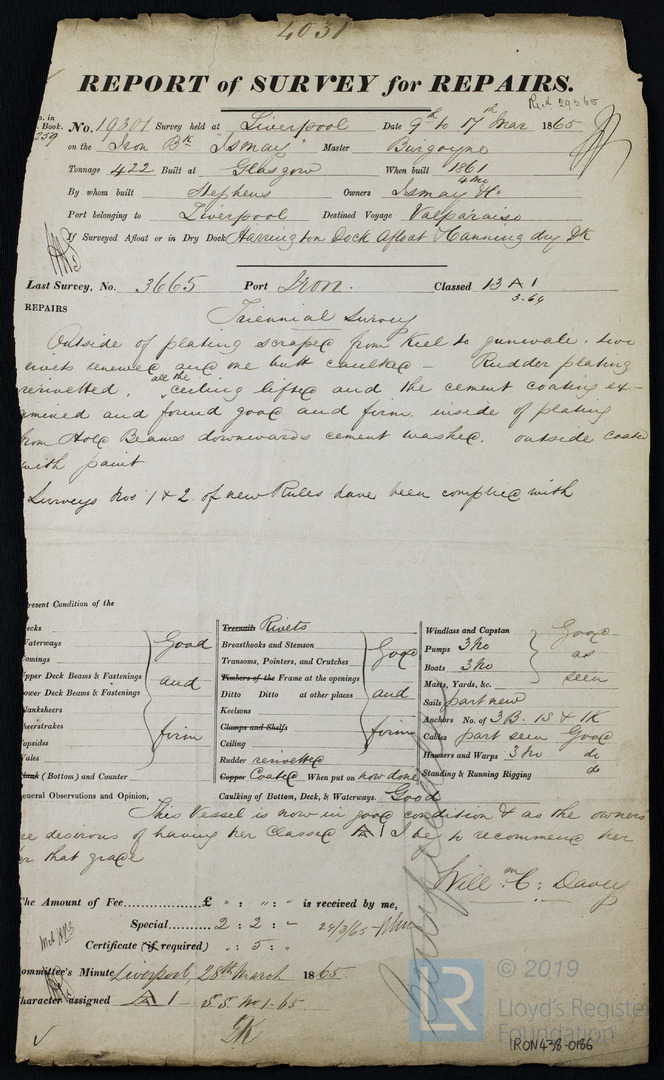 4031
REPORT of SURVEY for REPAIRS.
Recd 29 3 65
. in
. Book. No. 19301 Survey held at Liverpool Date 9th to 17th Mar 1865
259 on the Iron Bk "Ismay" Master Burgoyne
Tonnage 422 Built at Glasgow When built 1861
4 mo
By whom built Stephens Owners Ismay & Co
Port belonging to Liverpool Destined Voyage Valparaiso
If Surveyed Afloat or in Dry Dock Harrington Dock Afloat & Canning dry Dk
Last Survey, No. 3665 Port Iron. Classed 13 A 1
3.64
REPAIRS
Triennial Survey
Outside of plating scraped from Keel to gunwale. two
rivets renewed and one butt caulked – Rudder plating
rerivetted. all the ceiling lifted and the cement coating ex-
amined and found good and firm. inside of plating
from Hold Beams downwards cement washed. outside coated
with paint
Surveys Nos 1 & 2 of new Rules have been complied with
resent Condition of the
ecks
Waterways
omings
pper Deck Beams & Fastenings
ower Deck Beams & Fastenings
lanksheers
heerstrakes
opsides
Wales
Plank (Bottom) and Counter
Good
and
firm
Treenails Rivets
Breasthooks and Stemson
Transoms, Pointers, and Crutches
Timbers of the Frame at the openings
Ditto Ditto at other places
Keelsons
Clamps and Shelfs
Ceiling
Good
and
firm
Rudder rerivetted
Copper Coated When put on now done
Caulking of Bottom, Deck, & Waterways. Good
Windlass and Capstan
Pumps 3 No
Boats 3 No
Masts, Yards, &c.
Good
as
seen
Sails part new
Anchors No. of 3 B. 1S & 1K
Cables part seen Good
Hawsers and Warps 3 No do
Standing & Running Rigging do
eneral Observations and Opinion,
This Vessel is now in good condition & as the owners
re desirous of having her classed A 1 I beg to recommend her
for that grade
Willm C: Davey
The Amount of Fee............... £ " : " : " is received by me,
Special........... 2 : 2 : -
24/3/65
Certificate (if required) . : 5 : .
ommittee's Minute Liverpool, 28th March 1865.
haracter assigned A 1 S.S. No 1-65
© 2019
LR
Lloyd's Register
Foundation
IRON438-0186